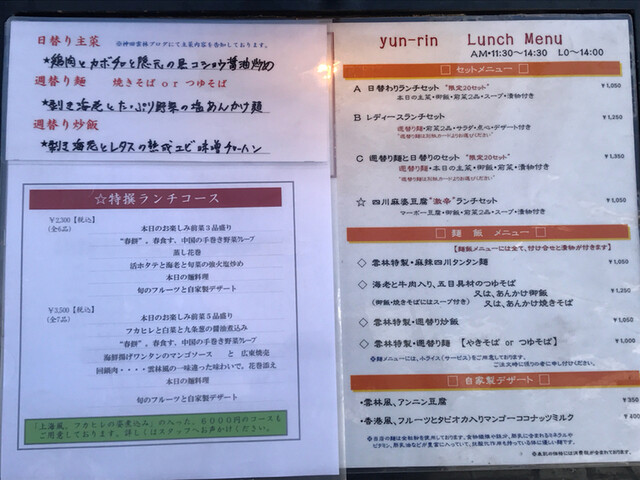 日替り主菜 ※神田雲林ブログにて主菜内容を告知しております。
★鶏肉とカボチャと隠元の黒コショウ醤油炒め
週替り麺 焼きそば or つゆそば
★剥き海老とたっぷり野菜の塩あんかけ麺
週替り炒飯
★剥き海老とレタスの熟成エビ味噌チャーハン
☆特撰ランチコース
¥2,300【税込】
(全6品)
本日のお楽しみ前菜3品盛り
“春餅”。春食す、中国の手巻き野菜クレープ
蒸し花巻
活ホタテと海老と旬菜の強火塩炒め
本日の麺料理
旬のフルーツと自家製デザート
¥3,500【税込】
(全7品)
本日のお楽しみ前菜5品盛り
フカヒレと白菜と九条葱の醤油煮込み
“春餅”。春食す、中国の手巻き野菜クレープ
海鮮揚げワンタンのマンゴソース と 広東焼売
回鍋肉・・・・雲林風の一味違った味わいで。花巻添え
本日の麺料理
旬のフルーツと自家製デザート
「上海風、フカヒレの姿煮込み」の入った、6000円のコースも
ご用意しております。詳しくはスタッフへお声かけください。
yun-rin Lunch Menu
AM・11:30~14:30 LO~14:00
セットメニュー
A 日替わりランチセット “限定20セット” ¥1,050
本日の主菜・御飯・前菜2品・スープ・漬物付き
B レディースランチセット ¥1,250
週替り麺・前菜2品・サラダ・点心・デザート付き
*週替り麺は別紙カードよりお選びください
C 週替り麺と日替りのセット “限定20セット” ¥1,350
週替り麺・本日の主菜・御飯・前菜・漬物付き
*週替り麺は別紙カードよりお選びください
☆ 四川麻婆豆腐“激辛”ランチセット ¥1,050
マーボー豆腐・御飯・前菜2品・スープ・漬物付き
麺 飯 メニュー
【麺飯メニューには全て、付け合せと漬物が付きます】
◇ 雲林特製・麻辣四川タンタン麺 ¥1,050
◇ 海老と牛肉入り、五目具材のつゆそば
又は、あんかけ御飯 ¥1,250
(御飯・焼きそばにはスープ付き) 又は、あんかけ焼きそば
◇ 雲林特製・週替り炒飯 ¥1,050
◇ 雲林特製・週替り麺 【やきそば or つゆそば】 ¥1,000
※麺メニューには、小ライス(サービス)をご用意しております。
ご注文時に係りの者に申し付けください。
自家製デザート
・雲林風、アンニン豆腐 ¥350
・香港風、フルーツとタピオカ入りマンゴーココナッツミルク ¥400